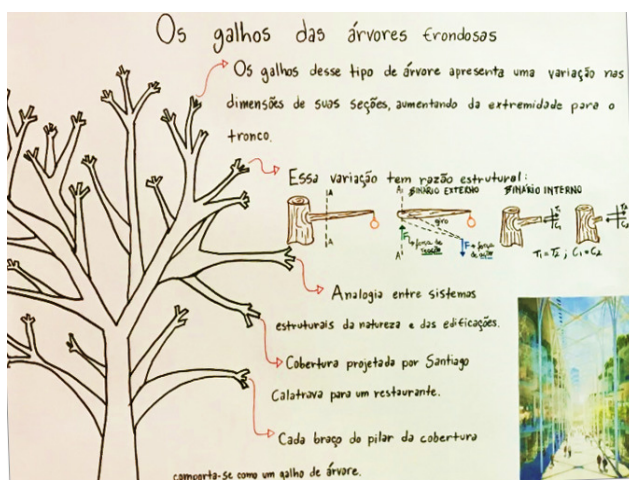 Os galhos das árvores frondosas
Os galhos desse tipo de árvore apresenta uma variação nas
dimensões de suas seções, aumentando da extremidade para o
tronco.
Essa variação tem razão estrutural:
BINÁRIO EXTERNO BINÁRIO INTERNO
A A
giro
A A'
F força de reação
F força de ação
T1 C1
T2 C2
T1=T2 ; C1=C2
Analogia entre sistemas
estruturais da natureza e das edificações.
Cobertura projetada por Santiago
Calatrava para um restaurante.
Cada braço do pilar da cobertura
comporta-se como um galho de árvore.